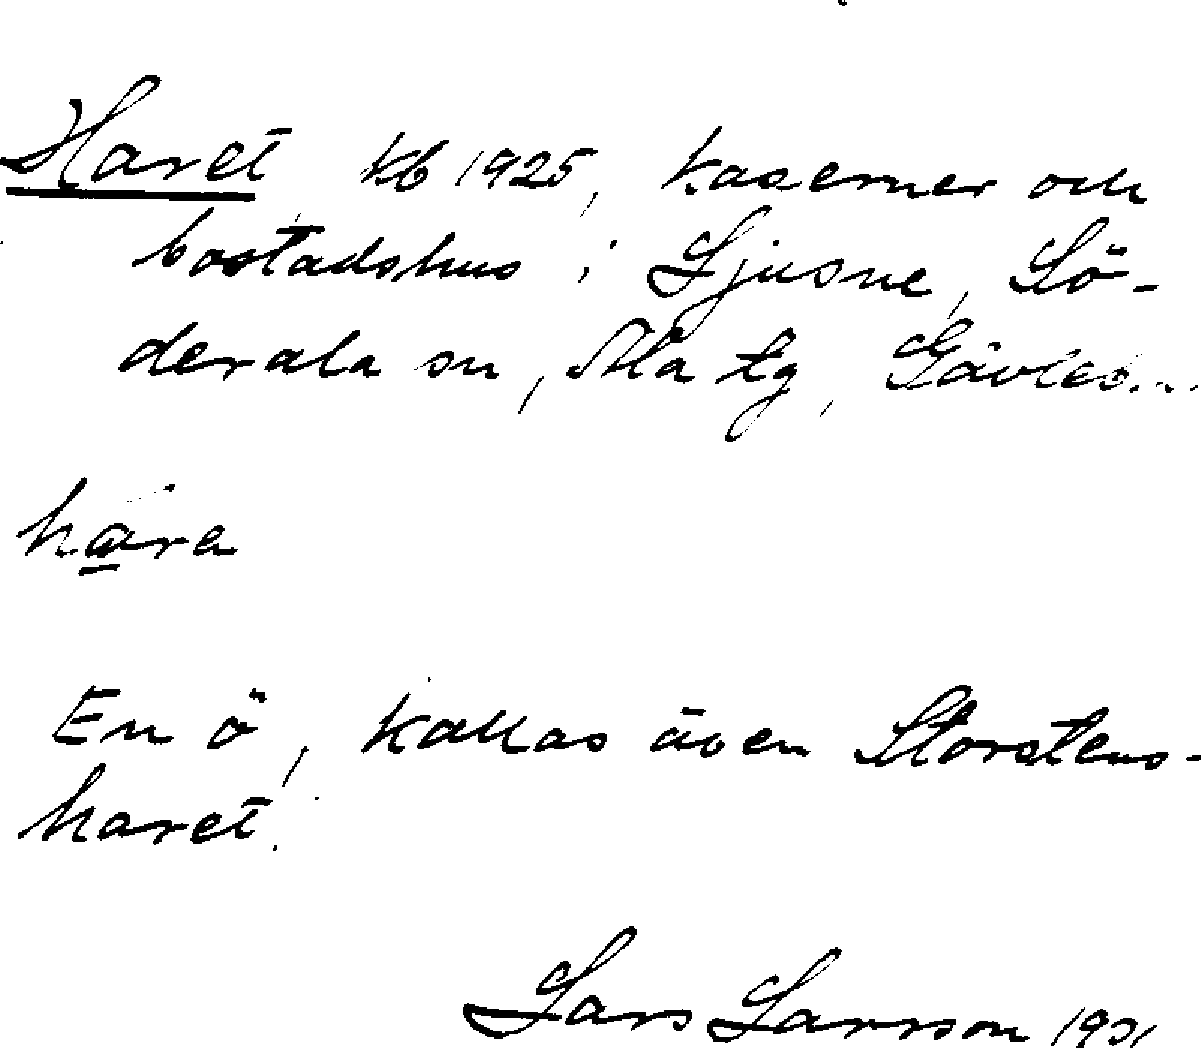 Haret kb 1925, kaserner och
bostadshus i Ljusne, Sö-
derala sn, Ala tg, Gävleb...
hara
En ö, kallas även Storstens-
haret.
Lars Larsson 1931